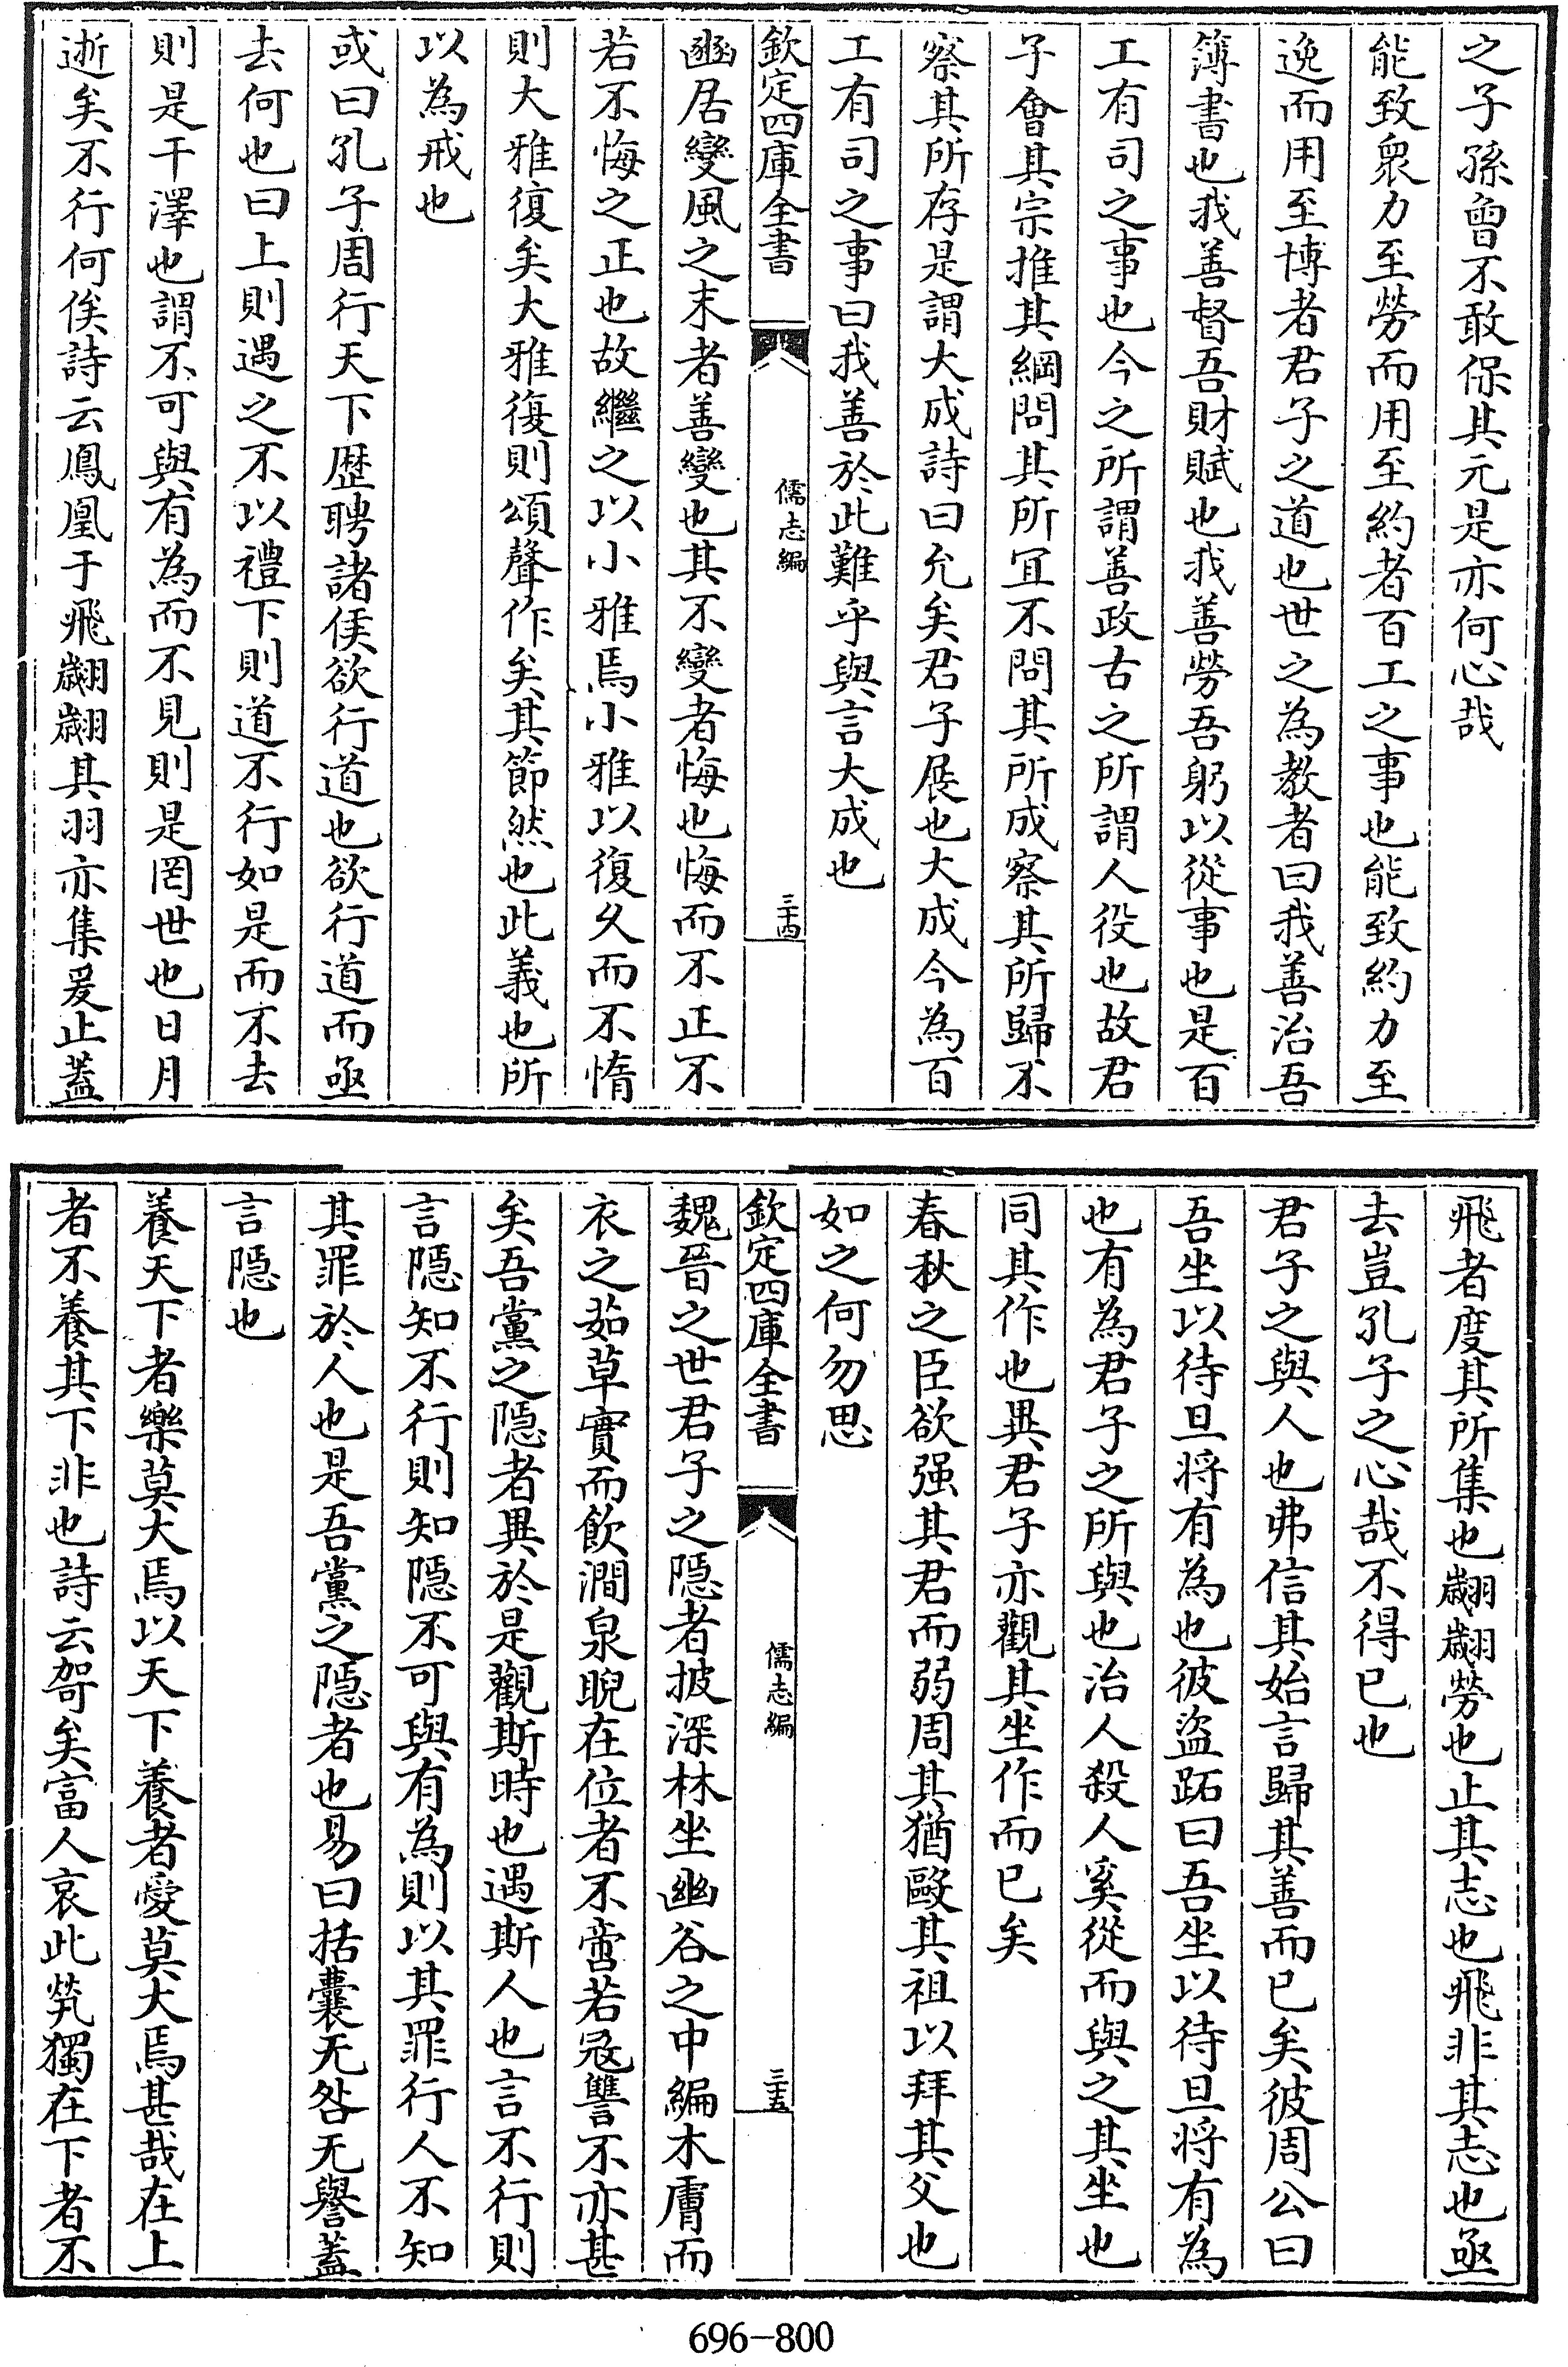 之子孫曾不敢保其元是亦何心哉
能致衆力至勞而用至約者百工之事也能致約力至
逸而用至博者君子之道也世之為教者曰我善治吾
簿書也我善督吾財賦也我善勞吾躬以從事也是百
工有司之事也今之所謂善政古之所謂人役也故君
子會其宗推其綱問其所冝不問其所成察其所歸不
察其所存是謂大成詩曰允矣君子展也大成今為百
工有司之事曰我善於此難乎與言大成也
欽定四庫全書
儒志編
三十四
豳居變風之末者善變也其不變者悔也悔而不正不
若不悔之正也故繼之以小雅焉小雅以復久而不惰
則大雅復矣大雅復則頌聲作矣其節然也此義也所
以為戒也
或曰孔子周行天下歴聘諸侯欲行道也欲行道而亟
去何也曰上則遇之不以禮下則道不行如是而不去
則是干澤也謂不可與有為而不見則是罔世也日月
逝矣不行何俟詩云鳳凰于飛翽翽其羽亦集爰止蓋
飛者度其所集也翽翽勞也止其志也飛非其志也亟
去豈孔子之心哉不得已也
君子之與人也弗信其始言歸其善而已矣彼周公曰
吾坐以待旦将有為也彼盜跖曰吾坐以待旦将有為
也有為君子之所與也治人殺人奚從而與之其坐也
同其作也異君子亦觀其坐作而已矣
春秋之臣欲强其君而弱周其猶毆其祖以拜其父也
如之何勿思
欽定四庫全書
儒志編
三十五
魏晉之世君子之隠者披深林坐幽谷之中編木膚而
衣之茹草實而飲澗泉睨在位者不啻若宼讐不亦甚
矣吾黨之隠者異於是觀斯時也遇斯人也言不行則
言隠知不行則知隠不可與有為則以其罪行人不知
其罪於人也是吾黨之隠者也易曰括囊无咎无譽蓋
言隠也
養天下者樂莫大焉以天下養者愛莫大焉甚哉在上
者不養其下非也詩云哿矣富人哀此煢獨在下者不
696-800